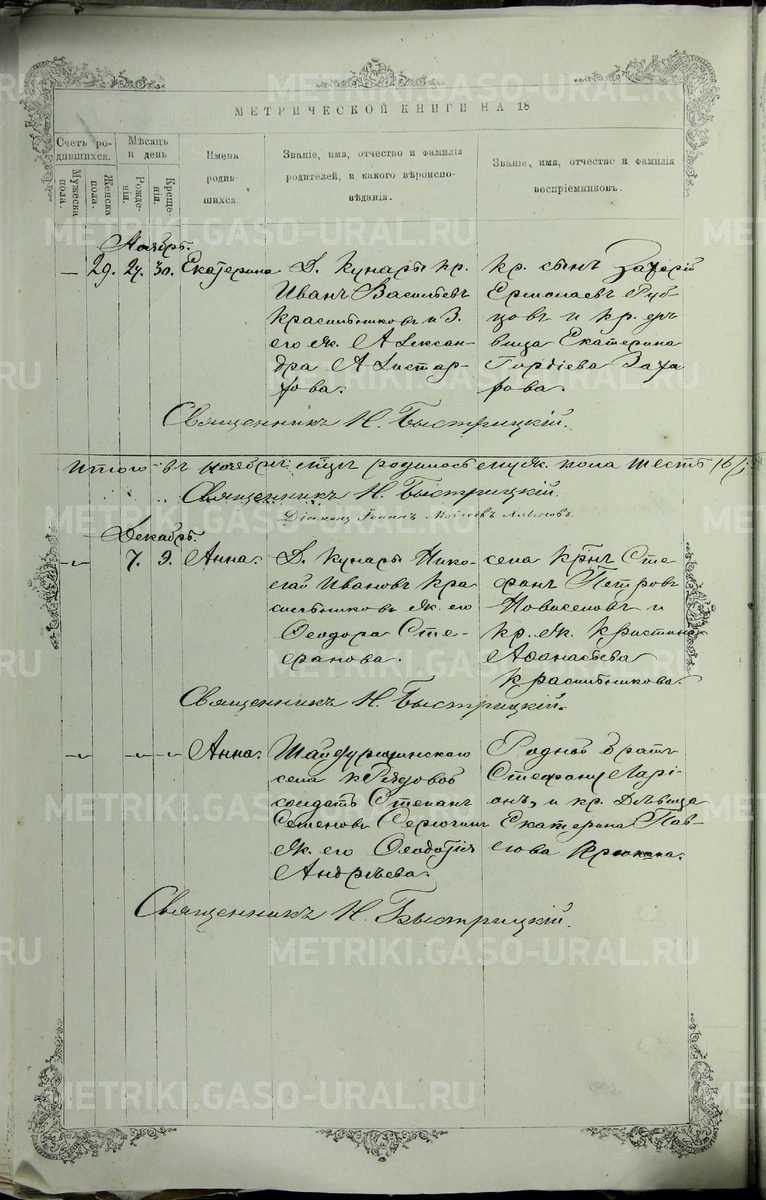 МЕТРИЧЕСКОЙ КНИГИ НА 18
Счетъ ро-
дившихся.
Мужеска
пола.
Женска
пола.
Мѣсяцъ
и день
Рожде-
нія.
Креще-
нія.
Имена
родив-
шихся.
Званіе, имя, отчество и фамилія
родителей, и какого вѣроиспо-
вѣданія.
Званіе, имя, отчество и фамилія
воспріемниковъ.
Ноябрь.
— 29. 27. 30. Екатерина
Д. Кунары кр.
Иванъ Васильевъ
Красильниковъ и З.
его ж. Алексан-
дра Алистар-
хова.
кр. сынъ Захарій
Ермолаевъ Руб-
цовъ и кр. дѣ-
вица Екатерина
Гордіева Заха
рова.
Священникъ Н. Быстрицкій.
Итого въ ноябрѣ мцѣ родилось муж. пола шесть
Священникъ Н. Быстрицкій.
Декабрь.
7. 9. Анна.
Д. Кунары Нико-
лай Ивановъ Кра
сильниковъ ж. его
Ѳеодора Сте-
фанова.
села крнъ Сте
фанъ Петровъ
Новоселовъ и
кр. ж. Христина
Аѳанасьева
Красильникова.
Священникъ Н. Быстрицкій.
Анна.
села
солдатъ Степанъ
Семеновъ
ж. его Ѳеодотія
Андрѣева.
Родной братъ
Стефану Ларі-
онъ, и кр. дѣвица
Екатерина Пав-
лова
Священникъ Н. Быстрицкій.
METRIKI.GASO-URAL.RU